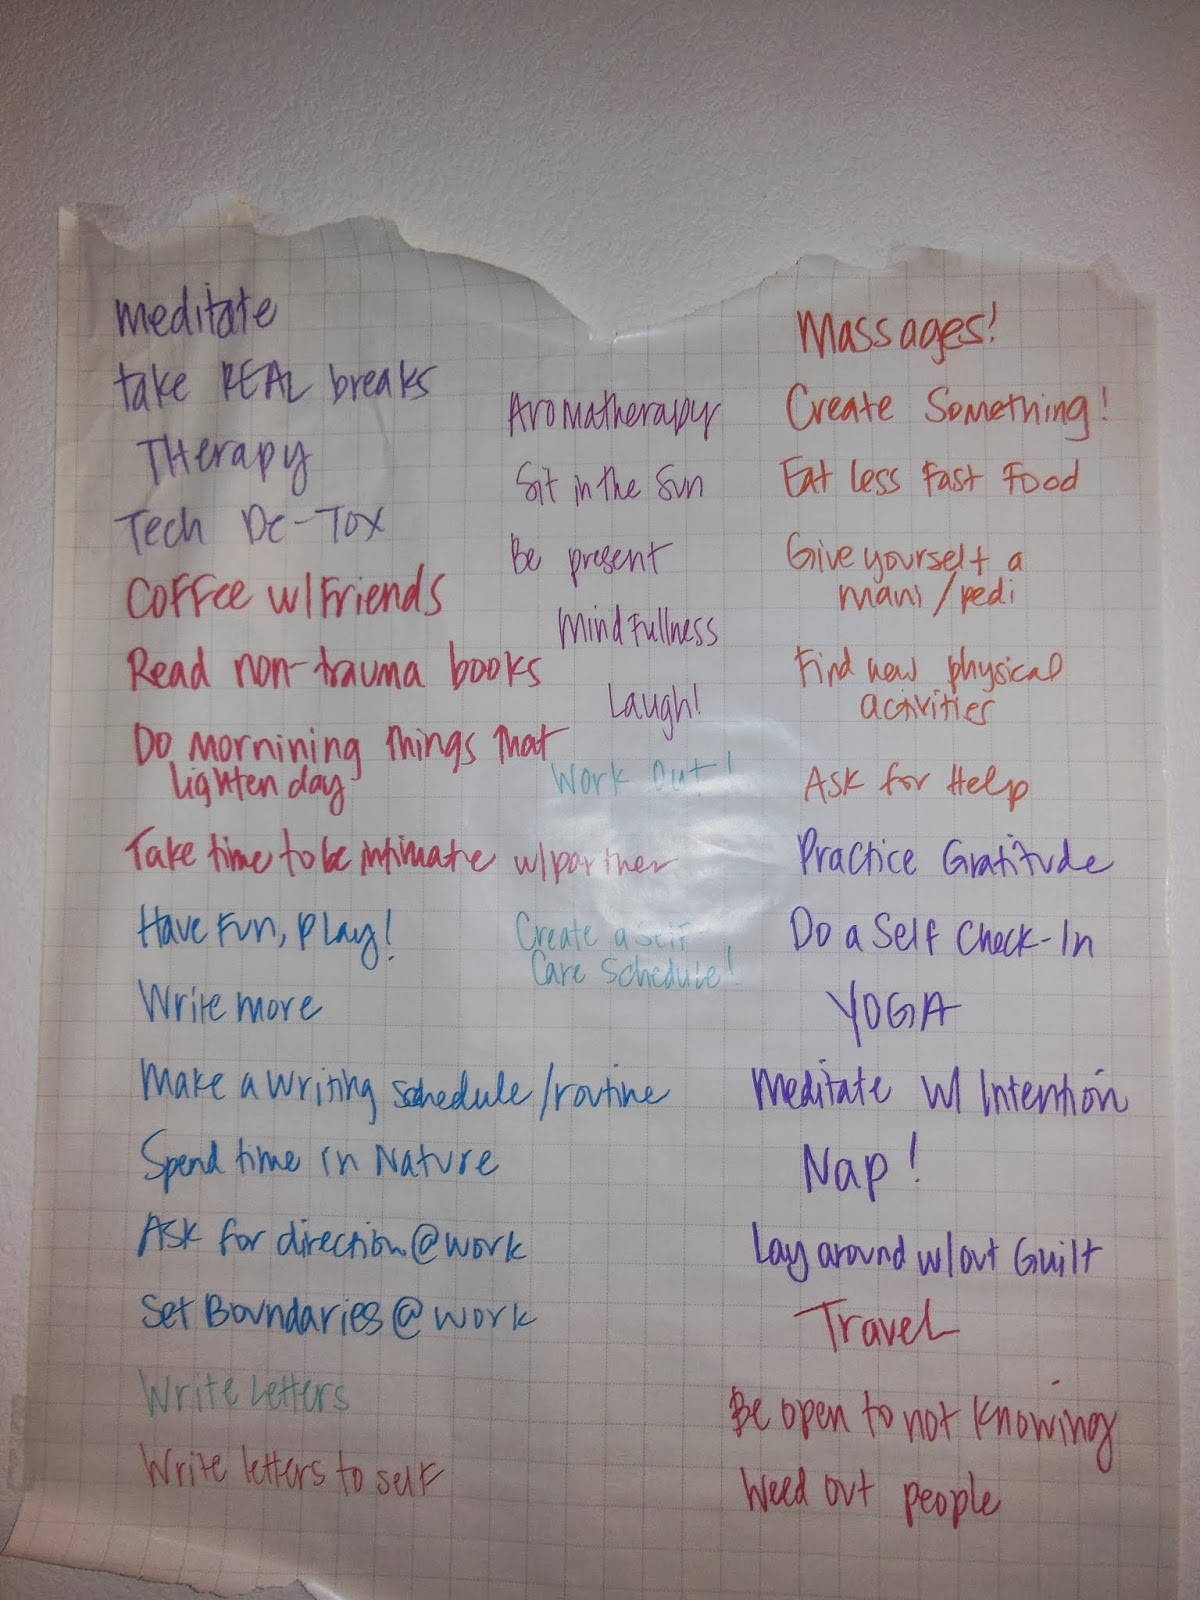 meditate
take REAL breaks
THerapy
Tech De-Tox
Coffee w/Friends
Read non-trauma books
Do mornining things that
lighten day
Take time to be intimate w/partner
Have Fun, Play!
Write more
Make a writing schedule/routine
Spend time in Nature
Ask for direction@work
Set Boundaries@work
Write Letters
Write letters to self
Aromatherapy
Sit in the Sun
Be present
MindFullness
Laugh!
Work Out!
Create a Self-
Care Schedule!
Massages!
Create Something!
Eat less Fast Food
Give yourself a
mani/pedi
Find new physical
activities
Ask for Help
Practice Gratitude
Do a Self Check-In
YOGA
Meditate w/ Intention
Nap!
Lay around w/out Guilt
Travel
Be open to not knowing
Weed out people